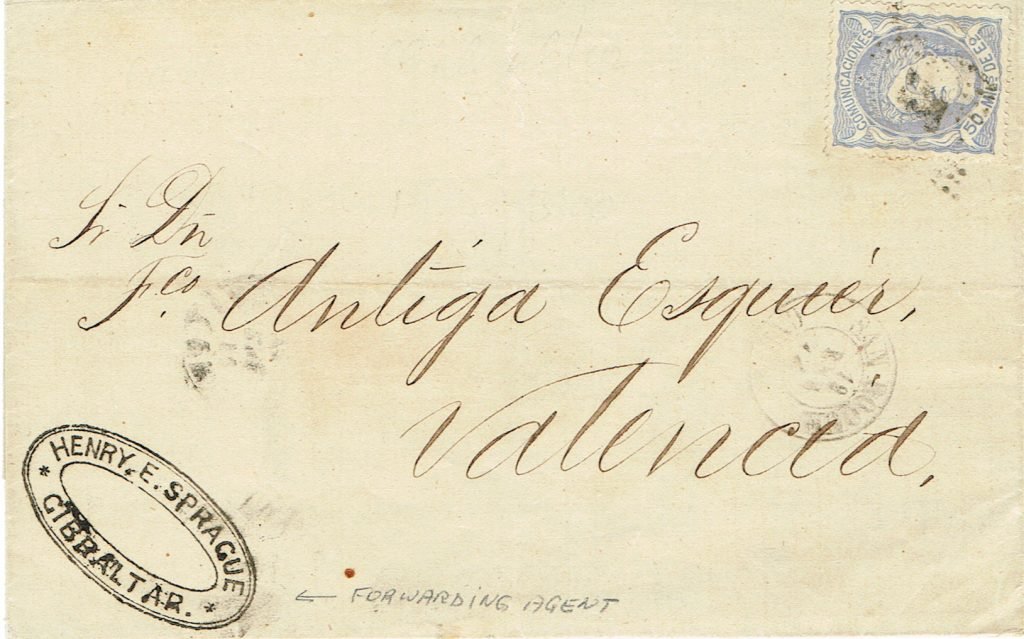 COMUNICACIONES
50 MILs DE Eo
Sr Dn
Fco Antiga Esquier,
Valencia,
HENRY. E. SPRAGUE
* GIBRALTAR. *
← FORWARDING AGENT